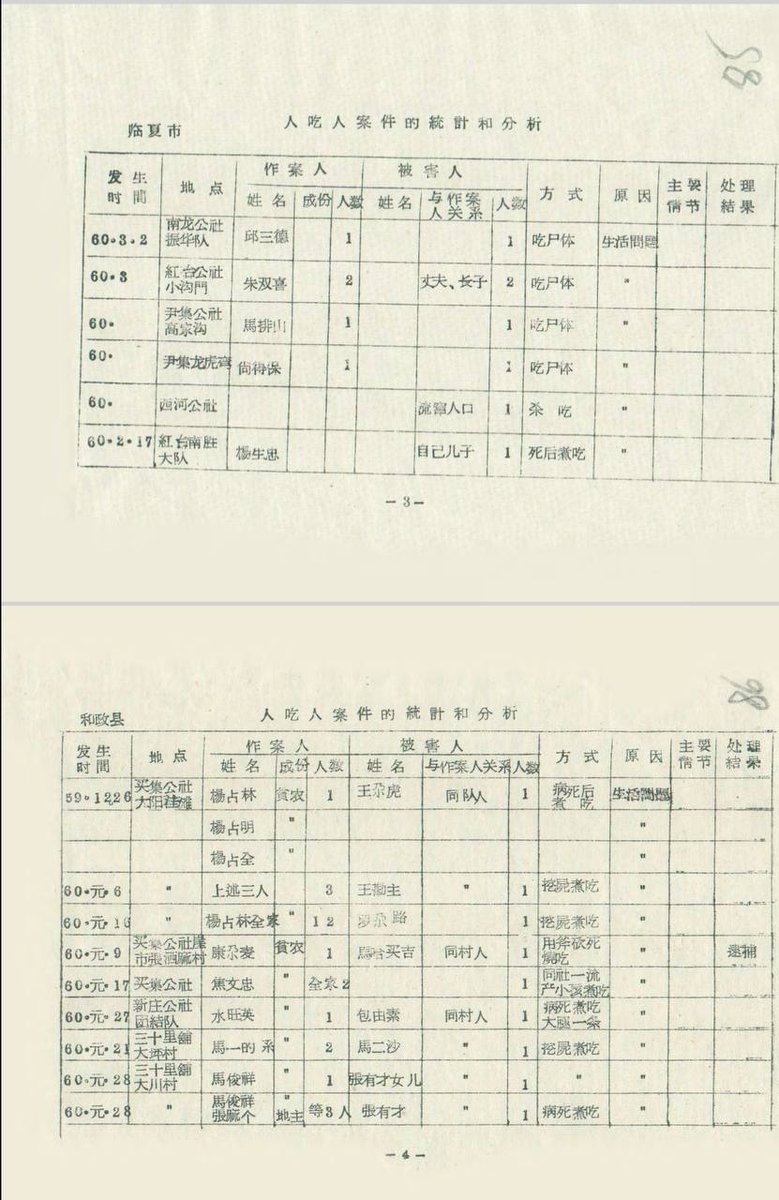 58
临夏市
人吃人案件的統計和分析
发生时間 地点 作案人 被害人 方式 原因 主要情节 处理結果
姓名 成份 人数 姓名 与作案人关系 人数
60·3·2 南龙公社振华队 邱三德 1 1 吃尸体 生活問題
60·3 紅台公社小沟門 朱双喜 2 丈夫、长子 2 吃尸体 〃
60· 尹集公社高家沟 馬排山 1 1 吃尸体 〃
60· 尹集龙虎湾 尙得保 1 1 吃尸体 〃
60· 西河公社 流窜人口 1 杀吃 〃
60·2·17 紅台南胜大队 楊生忠 自己儿子 1 死后煮吃 〃
—3—
和政县
人吃人案件的統計和分析
发生时間 地点 作案人 被害人 方式 原因 主要情节 处理結果
姓名 成份 人数 姓名 与作案人关系 人数
59·1226 买集公社大阳洼 楊占林 貧农 1 王尕虎 同队人 1 病死后煮吃 生活問題
楊占明 〃 〃
楊占全 〃 〃
60·元·6 〃 上述三人 3 王勤主 〃 1 挖屍煮吃 〃
60·元·16 〃 楊占林全家 〃 12 尕路 1 挖屍煮吃 〃
60·元·9 买集公社 市張洒廠村 康尕麦 貧农 1 馬哈买吉 同村人 1 用斧砍死燒吃 〃 逮補
60·元·17 买集公社 焦文忠 〃 全家2 1 同社一流产小孩煮吃 〃
60·元·27 新庄公社团結队 水旺英 〃 1 包由素 同村人 1 病死煮吃大腿一条 〃
60·元·21 三十里舖大坪村 馬一的系 〃 2 馬二沙 〃 1 挖屍煮吃 〃
60·元·28 三十里舖大川村 馬俊祥 〃 1 張有才女儿 〃 1 〃 〃
60·元·28 〃 馬俊祥張廠个 〃地主 等3人 張有才 〃 1 病死煮吃 〃
—4—